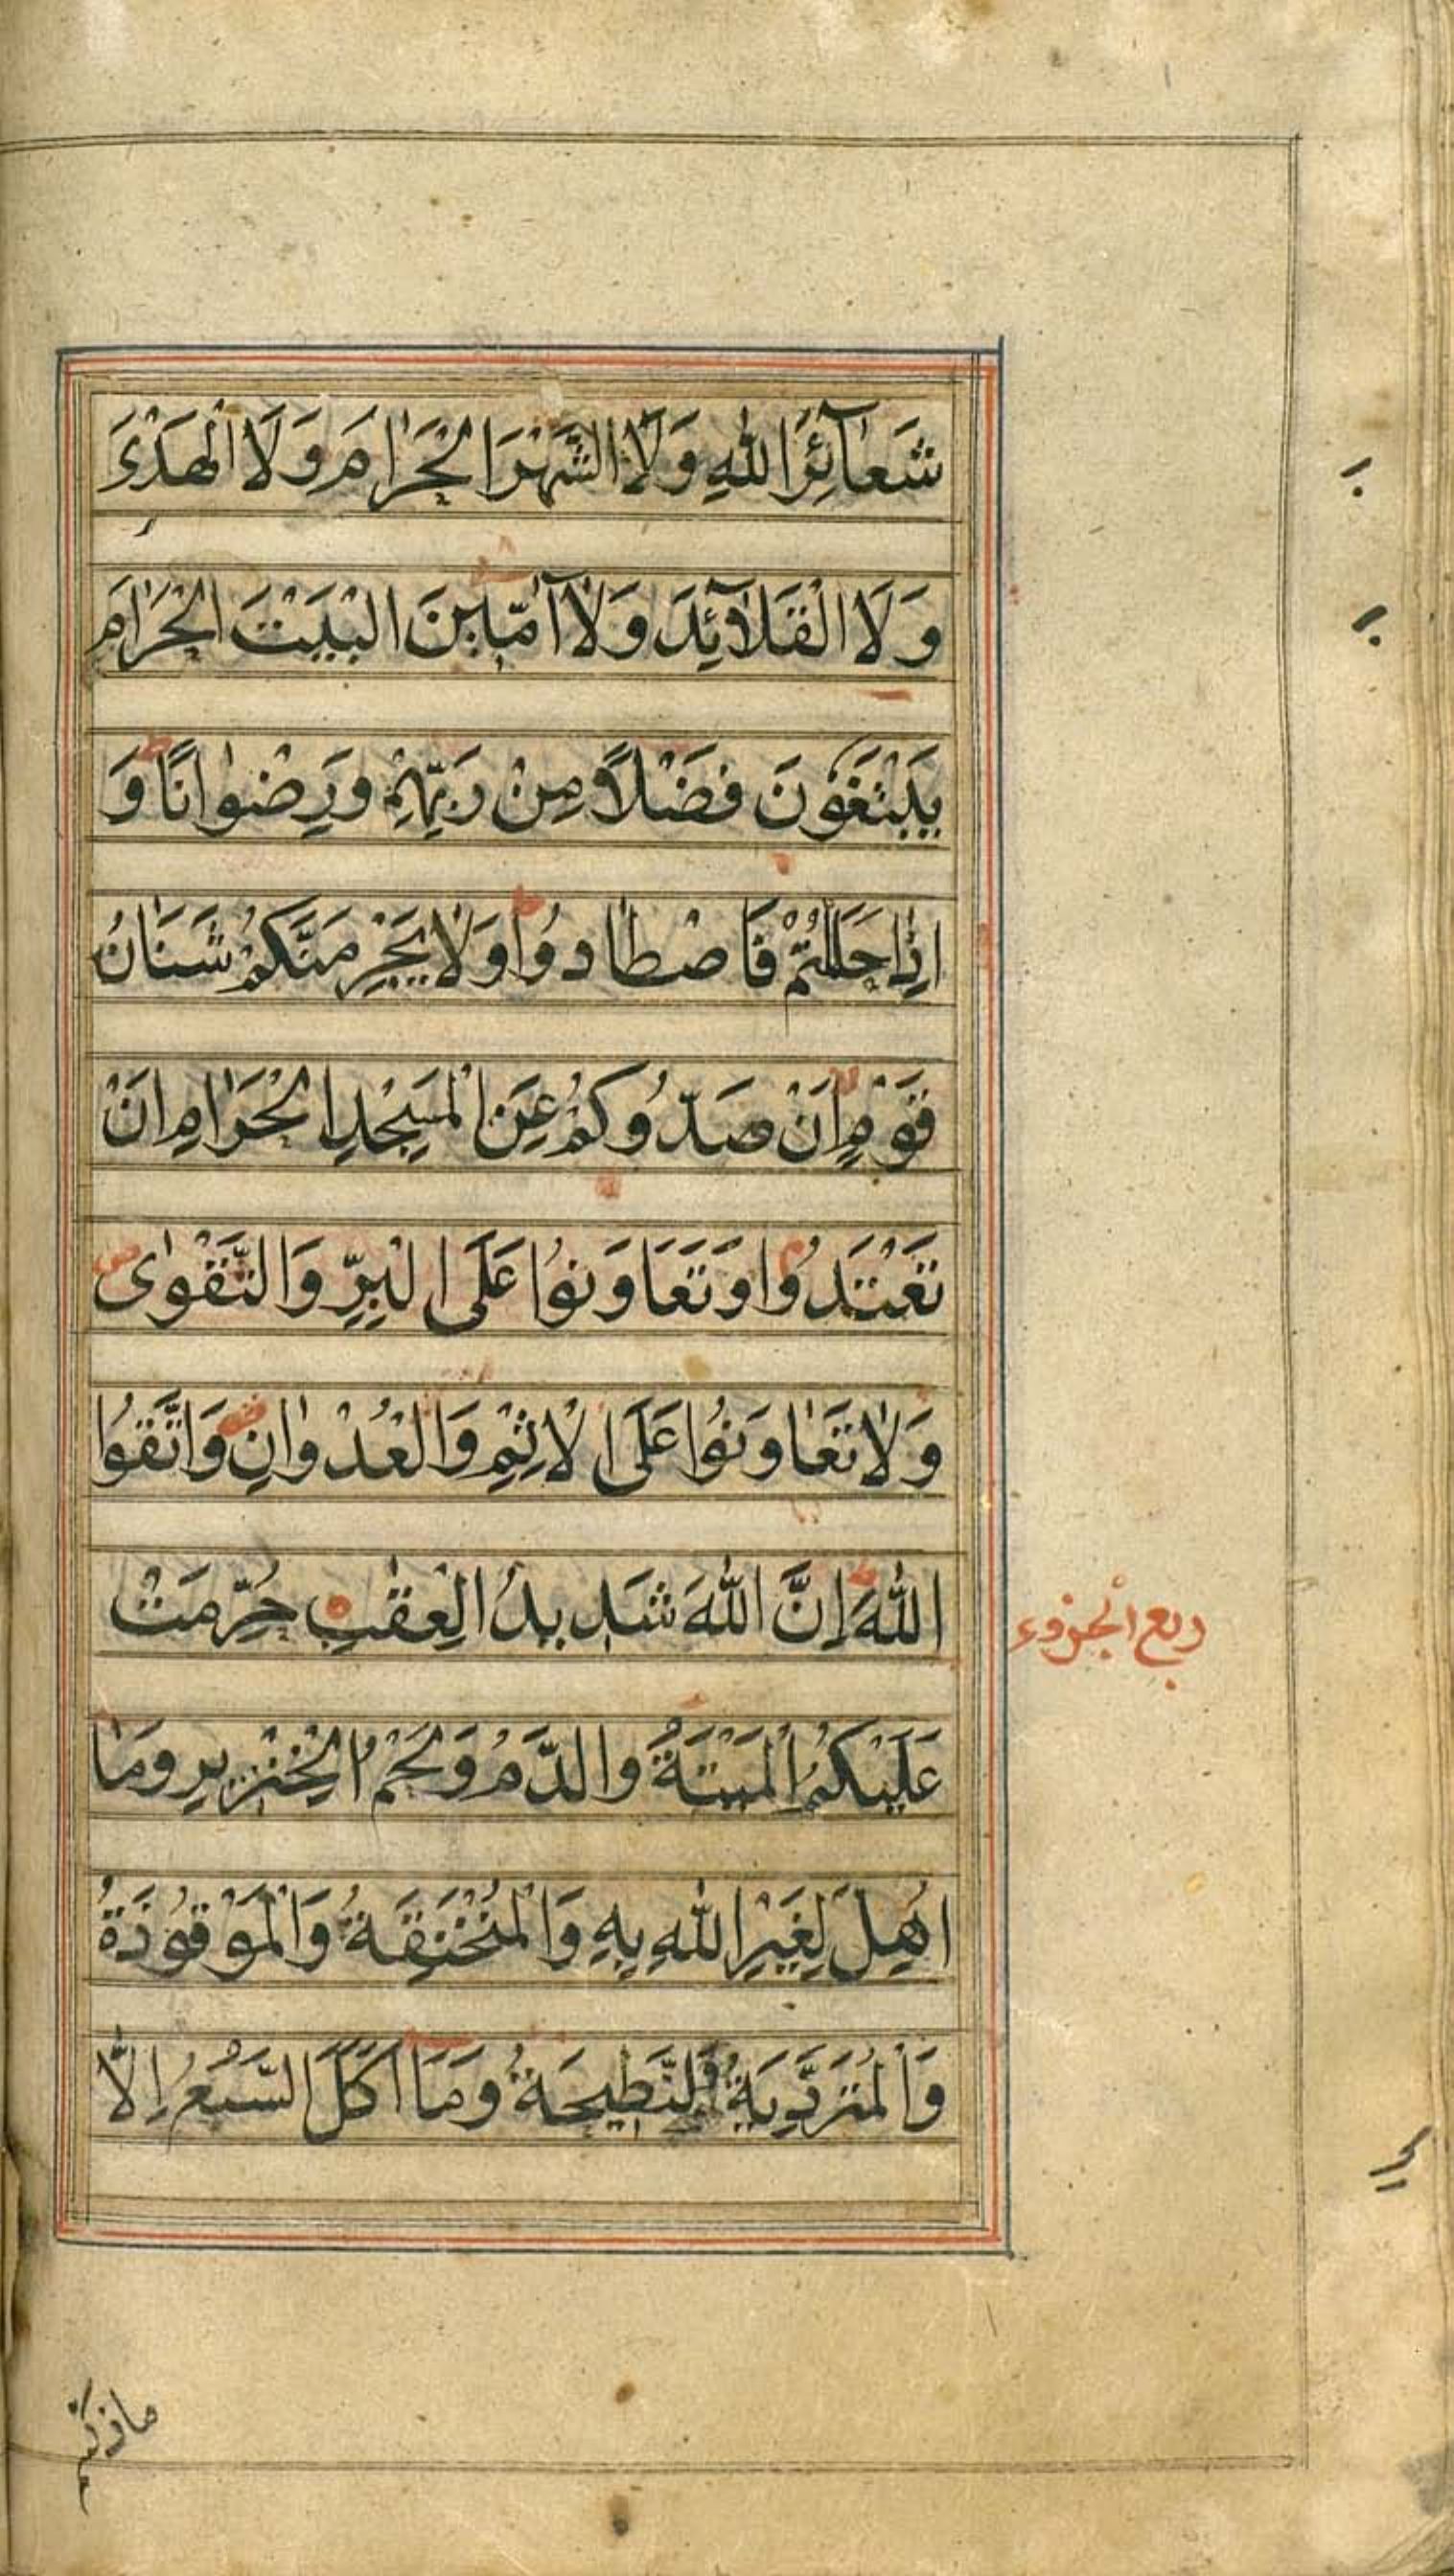 شَعَآئِرَ اللّٰهِ وَلَا الشَّهْرَ الْحَرَامَ وَلَا الْهَدْىَ
وَلَا الْقَلَآئِدَ وَلَآ اٰمِّيْنَ الْبَيْتَ الْحَرَامَ
يَبْتَغُوْنَ فَضْلًا مِنْ رَبِّهِمْ وَرِضْوَانًا وَ
اِذَا حَلَلْتُمْ فَاصْطَادُوْا وَلَا يَجْرِمَنَّكُمْ شَنَاٰنُ
قَوْمٍ اَنْ صَدُّوْكُمْ عَنِ الْمَسْجِدِ الْحَرَامِ اَنْ
تَعْتَدُوْا وَتَعَاوَنُوْا عَلَى الْبِرِّ وَالتَّقْوٰى
وَلَا تَعَاوَنُوْا عَلَى الْاِثْمِ وَالْعُدْوَانِ وَاتَّقُوا
اللّٰهَ اِنَّ اللّٰهَ شَدِيدُ الْعِقٰبِ حُرِّمَتْ
ربع الجزوء
عَلَيْكُمُ الْمَيْتَةُ وَالدَّمُ وَلَحْمُ الْخِنْزِيرِ وَمَا
اُهِلَّ لِغَيْرِ اللّٰهِ بِهِ وَالْمُنْخَنِقَةُ وَالْمَوْقُوْذَةُ
وَالْمُتَرَدِّيَةُ وَالنَّطِيحَةُ وَمَا اَكَلَ السَّبُعُ اِلَّا
ماذكيتم